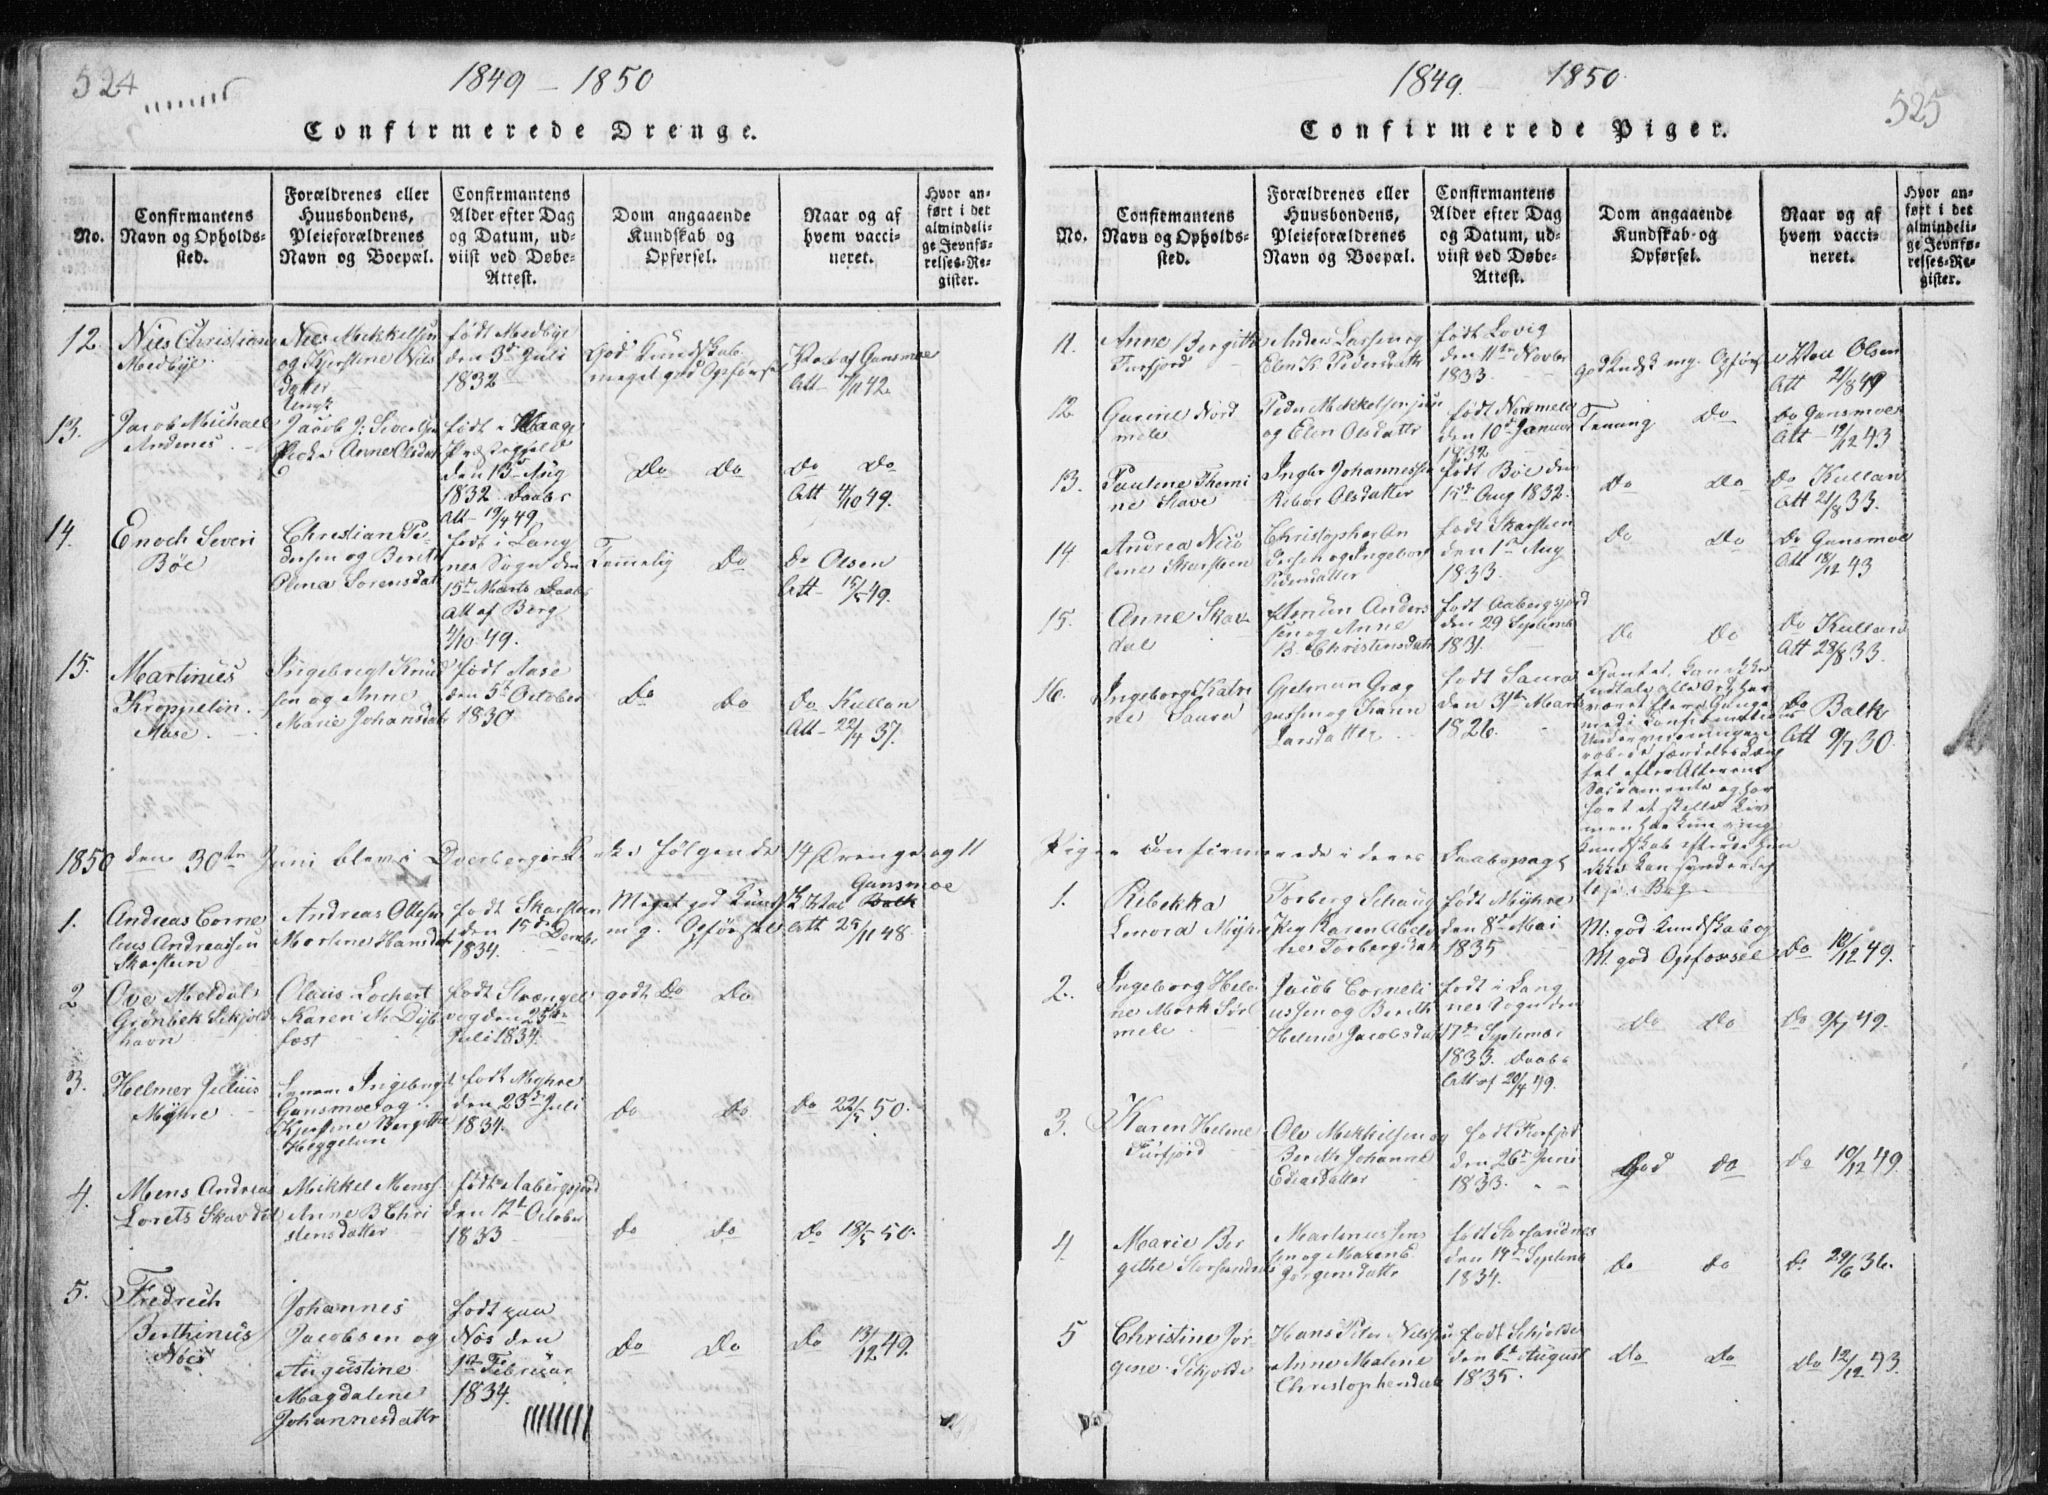 524
1849 – 1850
Confirmerede Drenge.
No.
Confirmantens Navn og Opholds-sted.
Forældrenes eller Huusbondens, Pleieforældrenes Navn og Boepæl.
Confirmantens Alder efter Dag og Datum, ud-viist ved Døbe-Attest.
Dom angaaende Kundskab og Opførsel.
Naar og af hvem vacci-neret.
Hvor an-ført i det almindeli-ge Jevnfø-relses-Re-gister.
12.
Niels Christian
Medbye
Niels Mikkelsen
og Kjerstine Nils
datter
født Medbye
den 3d Juli
1832
God Kundskab
meget god Opførsel
Vac af Gansmoe
Att 42
13.
Jacob Michael
Andenes
Jacob J. Sivertsen
Anne Olsdatt
født
Præstegjeld
den 13d Aug
1832 Daabs
Att 19/4 49
Do Do
Do Do
Att 4/10 49.
14.
Enoch Severi
Böe
Christian Pe-
dersen og Berit
Olina Sorensdat
født i Lang
nes Sogn den
15d Marts Daabs
Att af Borg
4/10 49.
Temmelig Do
Do Olsen
Att 15/5 49.
15.
Martinus
Kroppelin
Aase
Ingebrigt Knud
sen og Anne
Marie Johansdat
født Aase
den 5t October
1830
Do Do
Do Kullan
Att 22/4 37.
1850 den 30te Juni blev i Dverbergs Kirke følgende 14 Drenge og 11
1.
Andreas Corne
lius Andreassen
Skarstein
Andreas Ottesen
Martine Hansdat
født Skarstein
den 15de Decbr
1834.
Meget god Kundsk
m g. Opførsel
Vac Gansmoe
Att 25/11 48
2
Ove Meldal
Grönbek Skjolde
havn
Olaus Lochert
Karen M Dyb
fest
født Strængel
vog den 25de
Juli 1834.
godt Do Do
3.
Helmer Julius
Myhre
Ingebrigt
Gansmoe og
Kjerstine Bergitte
Heggelun
født Myhre
den 23d Juli
1834.
Do Do
Do 22/5 50.
4.
Mens Andreas
Lorets Skavdal
Mikkel Menss
Anne B Chri
stensdatter
født Aabergsjord
den 12t October
1833
Do Do
Do 18/5 50.
5.
Fredrich
Berthinus
Nöis
Johannes
Jacobsen og
Augustine
Magdalene
Johannesdattr
født paa
Nös den
1st Februar
1834.
Do Do
Do 13/12 49.
525
1849. – 1850.
Confirmerede Piger.
No.
Confirmantens Navn og Opholds-sted.
Forældrenes eller Huusbondens, Pleieforældrenes Navn og Boepæl.
Confirmantens Alder efter Dag og Datum, ud-viist ved Døbe-Attest.
Dom angaaende Kundskab og Opførsel.
Naar og af hvem vacci-neret.
Hvor an-ført i det almindeli-ge Jevnfø-relses-Re-gister.
11.
Anne Bergitte
Furfjord
Anders Larsen og
Elen K. Pedersdattr
født Lovig
den 11te Novbr
1833.
god Kundsk mg. Opförs
Vac Olsen
Att 21/8 49
12.
Gurine Nord
mele
Peder Mikkelsen
og Elen Olsdattr
født Nordmele
den 10d Januar
1832
Do
Do Gansmoe
Att 19/12 43
13.
Pauline Themi
ne Stave
Ingbr Johannessen
Olsdatter
født Böe den
17d Aug 1832.
Do Do
Do Kullan
Att 21/8 33.
14
Andrea Nico
line Skarstein
Christopher An
dersen og Ingeborg
Pedersdatter
født Skarstein
den 1st Aug
1833.
Do Do
Do Gansmoe
Att 18/12 43
15.
Anne Skav
dal
Amün Anders
sen og Anne
B. Christensdatr
født Aabergsjord
den 29 Septemb
1831.
Do Do
Do Kullan
Att 28/8 33.
16.
Ingeborg Katri
ne Saura
Gjelmun Greg
gussen og Karen
Larsdatter
født Saura
den 31te Marts
1826.
kan ikke
udtale alle Ord har
været flere Gange
med i Confirmations
Undervisningen
efter Alterens
Sacramente og har
kun ringe
Kundskab efterdi hun
ikke kan synderlig
læse i Bog
Do Balk
Att 9/7 30.
Piger confirmerede i deres Daabspagt
1.
Rebekka
Lenora Myhre
Torberg Schaug
Karen Abelo
ne Torbergsdat
født Myhre
den 8d Mai
1835.
M. god Kundskab og
M. god Opførsel
Do 18/12 49.
2.
Ingeborg Hele
ne Mork Sörl
mele
Jacob Corneli
ussen og Berith
Helene Jacobsdat
født i Lang
nes Sogn den
17d Septembr
1833. Daabs
Att af 20/4 49.
Do Do
Do 9/7 49.
3.
Karen Helene
Furfjord
Ole Mikkelsen og
Berith Johanne
Ediasdatter
født Forfjord
den 26t Juni
1833.
God Do
Do 10/12 49.
4.
Marie Ber
githe Storsandnes
Martinus Jens
sen og Maren
Jörgensdattr
født Storsandnes
den 14d Septemb
1834.
Do Do
Do 29/6 36.
5
Christine Jör
gine Skjolde
Hans Peter Nilssen
Anne Malene
Christophersdatr
født Skjolde
den 6t August
1835.
Do Do
Do 12/12 43.